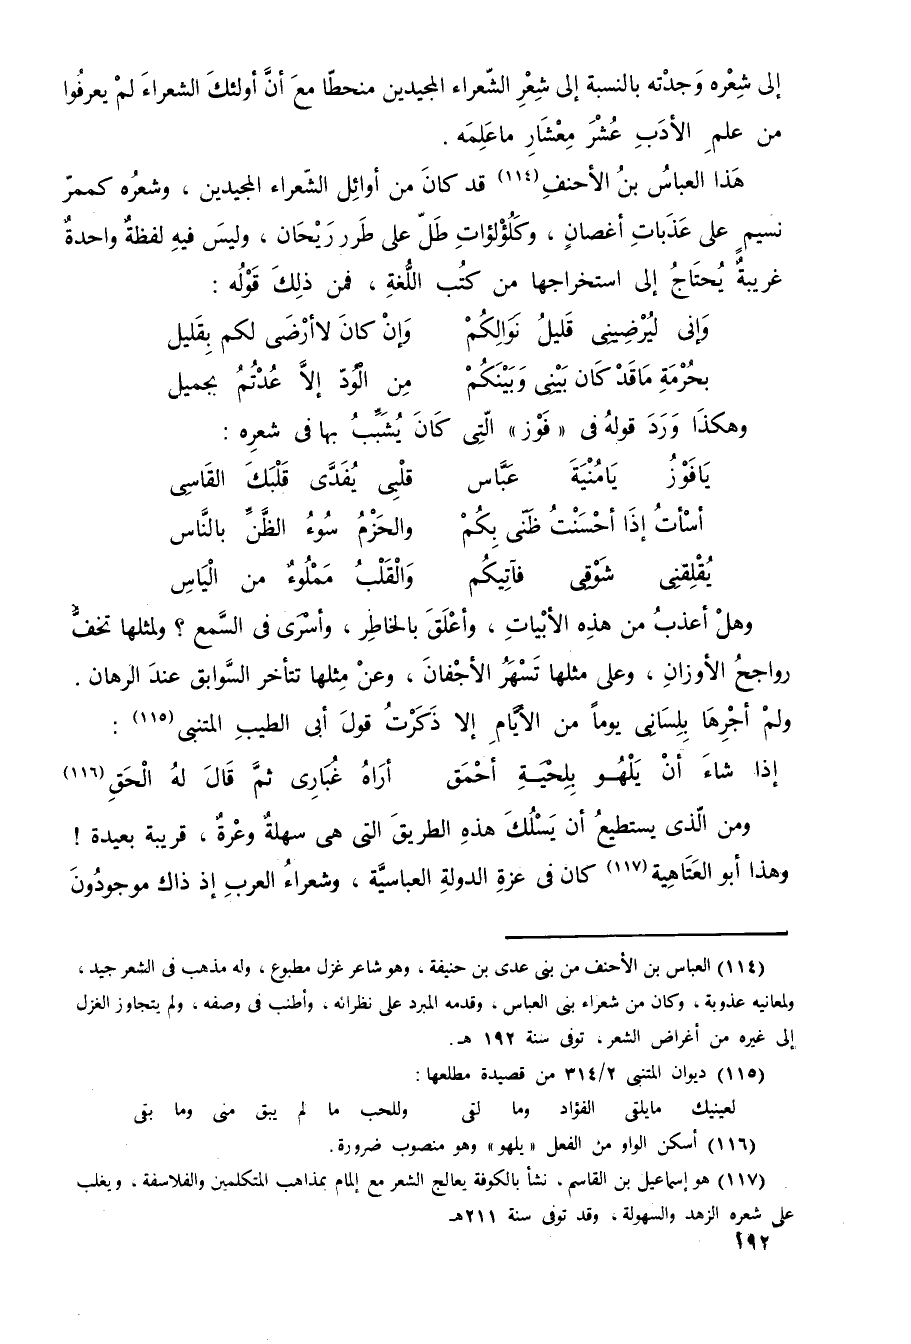 إلى شِعْره وَجدْته بالنسبة إلى شِعْرِ الشّعراء المجيدين منحطّا معَ أنَّ أولئكَ الشعراءَ لمْ يعرفُوا
من علمِ الأدَبِ عُشْرَ مِعْشَارِ ماعَلِمَه .
هَذا العباسُ بنُ الأحنفِ(١١٤) قد كانَ من أوائِل الشّعراء المجيدين ، وشعرُه كممرّ
نسيمٍ على عَذَباتِ أغصانٍ ، وكَلُؤْلؤاتِ طَلّ على طَرر رَيْحَان ، وليسَ فيهِ لفظةٌ واحدةٌ
غريبةٌ يُحتَاجُ إلى استخراجها من كتُب اللُّغةِ ، فمن ذلِكَ قَوْلُه :
وَإنى لَيُرْضِينِى قَلِيلُ نَوَالِكُمْ وَإنْ كانَ لاأرْضَى لكم بِقَليل
بحُرْمَةِ مَاقَدْ كَان بَيْنِى وَبَيْنَكُمْ مِن الْوُدّ إلاَّ عُدْتُمُ بجميل
وهكذَا وَرَدَ قولهُ فى « فَوْز » الّتِى كَانَ يُشَبِّبُ بها فى شعرِه :
يَافَوْزُ يَامُنْيَةَ عَبَّاس قلبِى يُفَدَّى قَلْبَكَ القَاسِى
أسْأتُ إذَا أحْسَنْتُ ظَنّى بِكُمْ والحَزْمُ سُوءُ الظَّنِّ بالنَّاس
يُقْلِقنِى شَوْقِى فآتِيكُم وَالْقَلْبُ مَمْلُوءٌ من الْيَاسِ
وهلْ أعذبُ من هذِه الأبْياتِ ، وأعْلَقَ بالخاطِر ، وأسْرَى فى السَّمع ؟ ولمثلها تخفُّ
رواجحُ الأوزانِ ، وعلى مثلها تَسْهَرُ الأجْفانَ ، وعنْ مِثلها تتأخر السَّوابق عندَ الرهان .
ولمْ أجْرِهَا بِلِسَانِى يوماً من الأيَّامِ إلا ذَكَرْتُ قولَ أبى الطيبِ المتنبى(١١٥) :
إذا شاءَ أنْ يَلْهُــو بِلِحْيَــةِ أحْمَق أرَاهُ غُبَارِى ثمَّ قَالَ لهُ الْحَقِ(١١٦)
ومن الّذى يستطيعُ أن يَسْلُكَ هذهِ الطريقَ التى هى سهلةٌ وعْرةٌ ، قريبة بعيدة !
وهذا أبو العَتَاهِية(١١٧) كان فى عزةِ الدولةِ العباسيَّة ، وشعراءُ العربِ إذ ذاك موجودُونَ
(١١٤) العباس بن الأحنف من بنى عدى بن حنيفة ، وهو شاعر غزل مطبوع ، وله مذهب فى الشعر جيد ،
ولمعانيه عذوبة ، وكان من شعراء بنى العباس ، وقدمه المبرد على نظرائه ، وأطنب فى وصفه ، ولم يتجاوز الغزل
إلى غيره من أغراض الشعر ، توفى سنة ١٩٢ هـ.
(١١٥) ديوان المتنبى ٣١٤/٢ من قصيدة مطلعها :
لعينيك مايلقى الفؤاد وما لقى وللحب ما لم يبق منى وما بقى
(١١٦) أسكن الواو من الفعل « يلهو » وهو منصوب ضرورة.
(١١٧) هو إسماعيل بن القاسم ، نشأ بالكوفة يعالج الشعر مع إلمام بمذاهب المتكلمين والفلاسفة ، ويغلب
على شعره الزهد والسهولة ، وقد توفى سنة ٢١١هـ
١٩٢